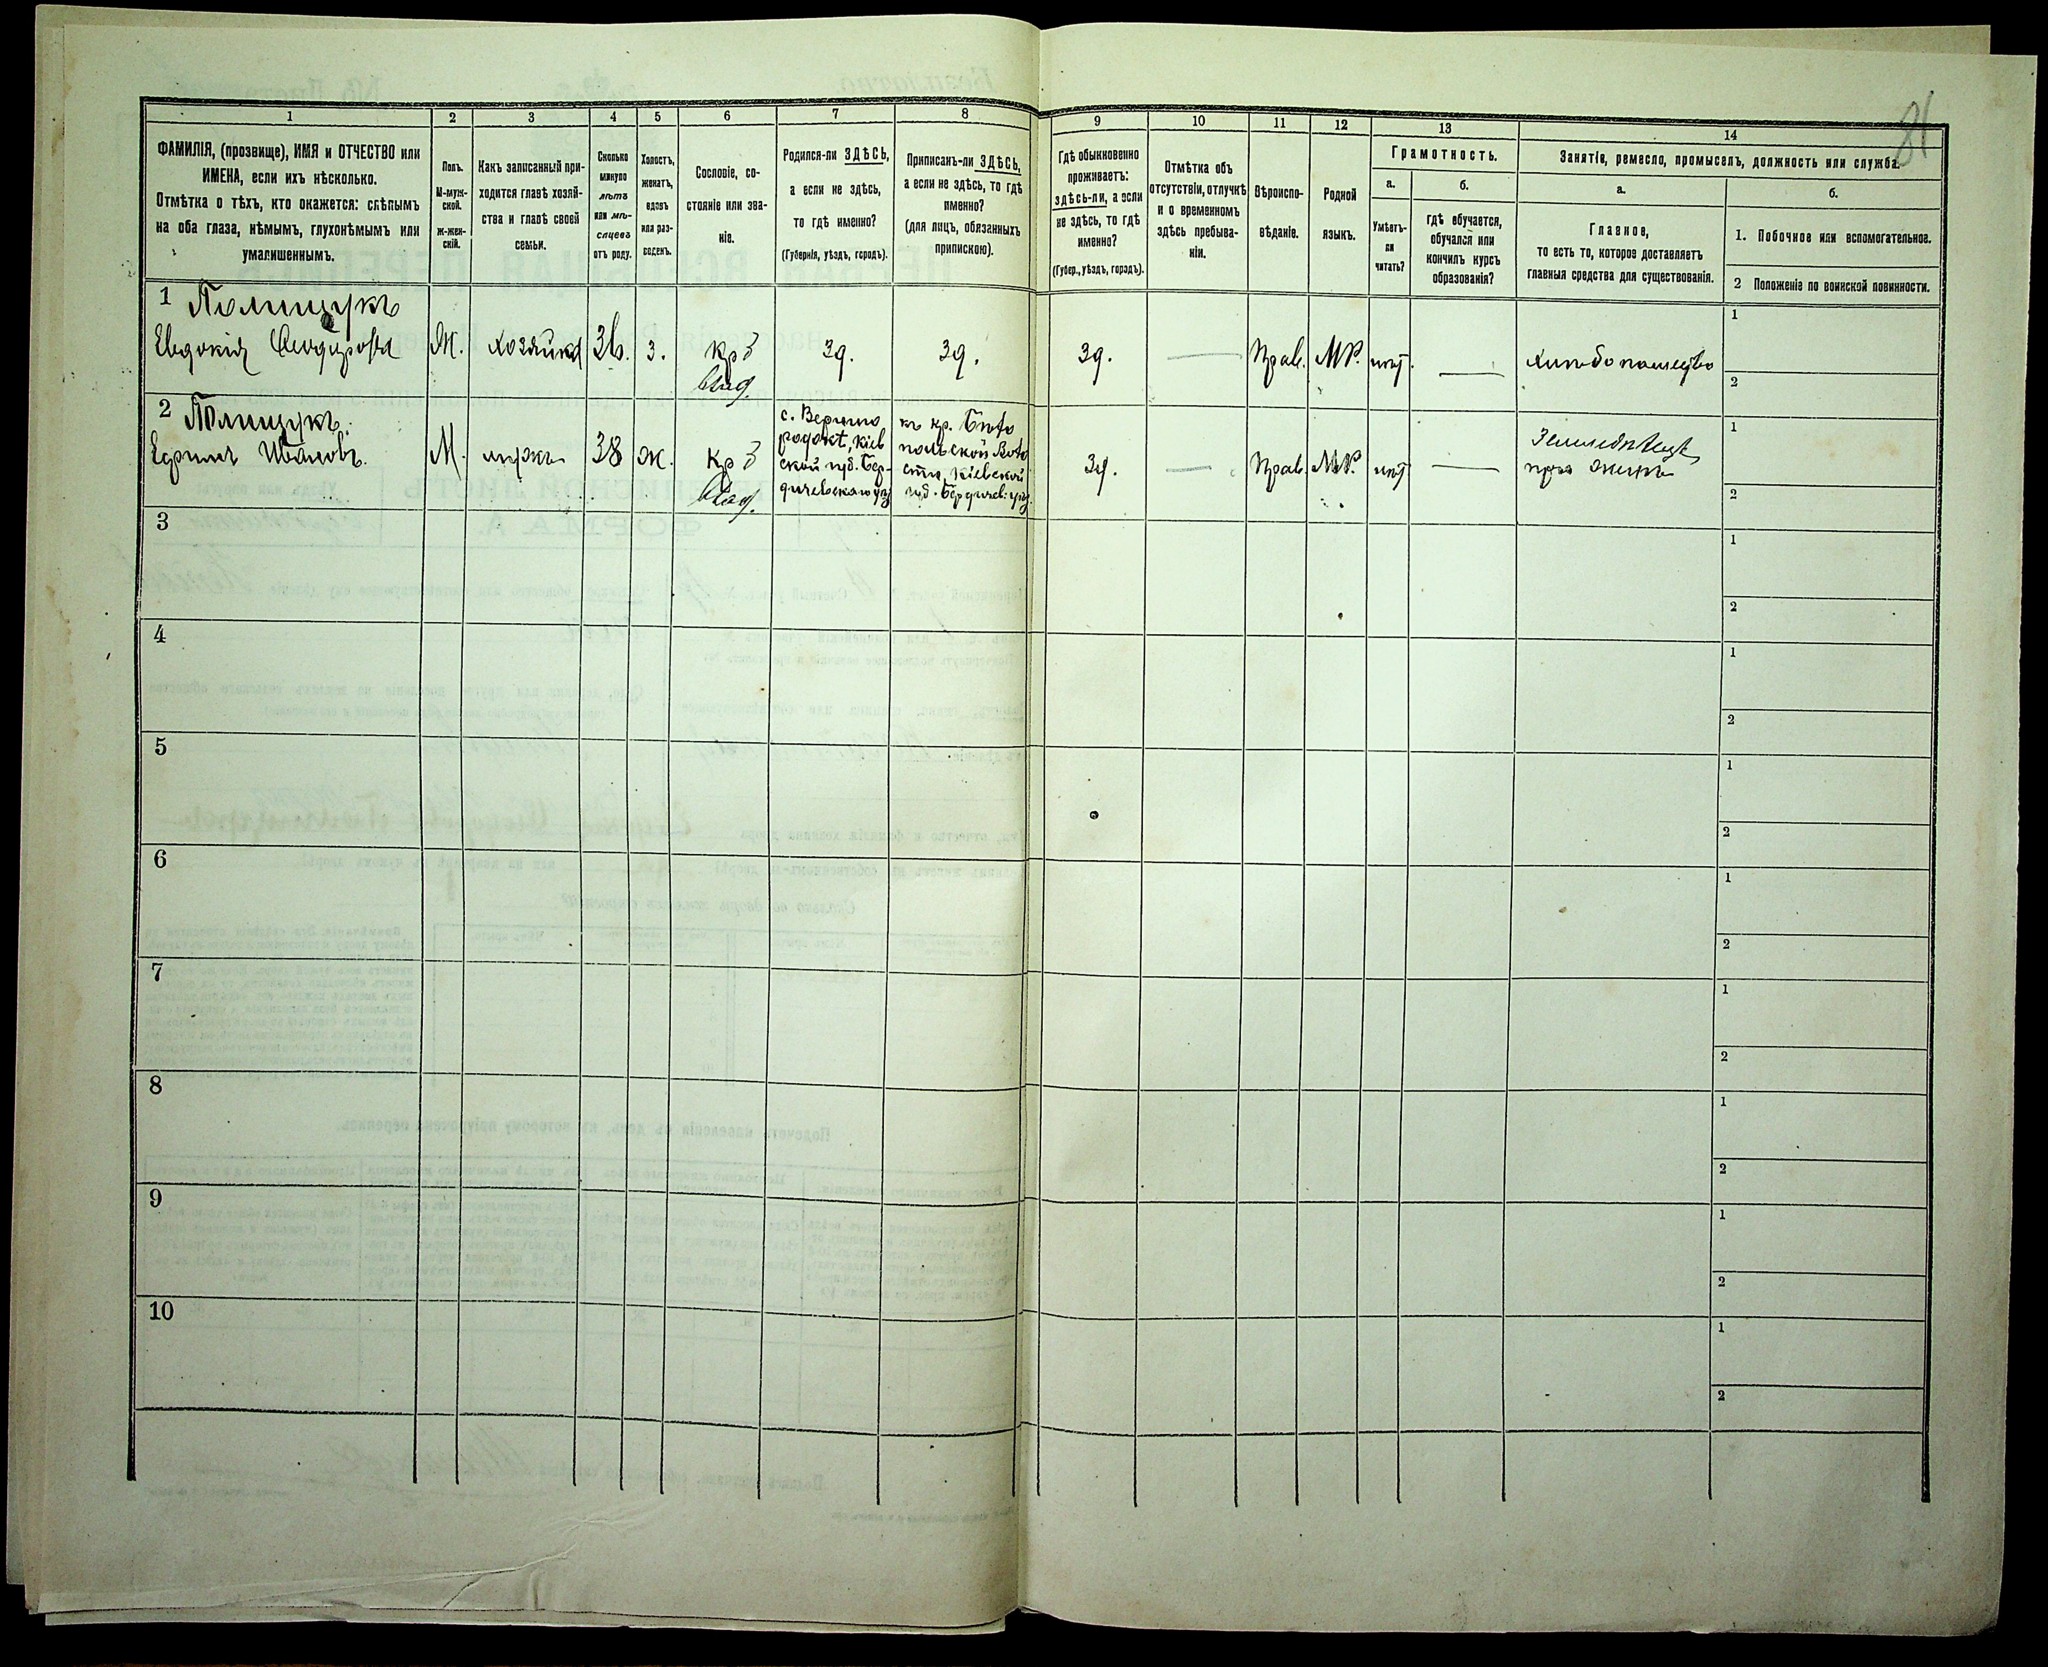 81
1
2
3
4
5
6
7
8
9
10
11
12
13
14
ФАМИЛІЯ, (прозвище), ИМЯ и ОТЧЕСТВО или
ИМЕНА, если ихъ нѣсколько.
Отмѣтка о тѣхъ, кто окажется: слѣпымъ
на оба глаза, нѣмымъ, глухонѣмымъ или
умалишеннымъ.
Полъ.
М-муж-
ской.
ж-жен-
скій.
Какъ записанный при-
ходится главѣ хозяй-
ства и главѣ своей
семьи.
Сколько
минуло
лѣтъ
или мѣ-
сяцевъ
отъ роду.
Холостъ,
женатъ,
вдовъ
или раз-
веденъ.
Сословіе, со-
стояніе или зва-
ніе.
Родился-ли ЗДѢСЬ,
а если не здѣсь,
то гдѣ именно?
(Губернія, уѣздъ, городъ).
Приписанъ-ли ЗДѢСЬ,
а если не здѣсь, то гдѣ
именно?
(для лицъ, обязанныхъ
припискою).
Гдѣ обыкновенно
проживаетъ:
здѣсь-ли, а если
не здѣсь, то гдѣ
именно?
(Губер., уѣздъ, городъ).
Отмѣтка объ
отсутствіи, отлучкѣ
и о временномъ
здѣсь пребыва-
ніи.
Вѣроиспо-
вѣданіе.
Родной
языкъ.
Грамотность.
а.
Умѣетъ-
ли
читать?
б.
гдѣ обучается,
обучался или
кончилъ курсъ
образованія?
Занятіе, ремесло, промыселъ, должность или служба.
а.
Главное,
то есть то, которое доставляетъ
главныя средства для существованія.
б.
1. Побочное или вспомогательное.
2 Положеніе по воинской повинности.
1 Полищукъ
Евдокія Феодорова
Ж.
хозяйка
36.
з.
кр З
Влад.
зд.
зд.
зд.
—
Прав.
МР.
нѣт.
—
Хлѣбопашество
1
2
2 Полищукъ
Ефимъ Ивановъ.
М.
мужъ
38
ж.
кр З
Влад.
с. Верни
городкѣ, Кіев
ской губ. Бер-
дичевскаго уѣз
къ кр. Бѣло
польской Воло
сти, Кіевской
губ. Бердичев: уѣз.
зд.
—
Прав.
МР.
нѣт
—
Земледѣлецъ
при женѣ
1
2
3
1
2
4
1
2
5
1
2
6
1
2
7
1
2
8
1
2
9
1
2
10
1
2